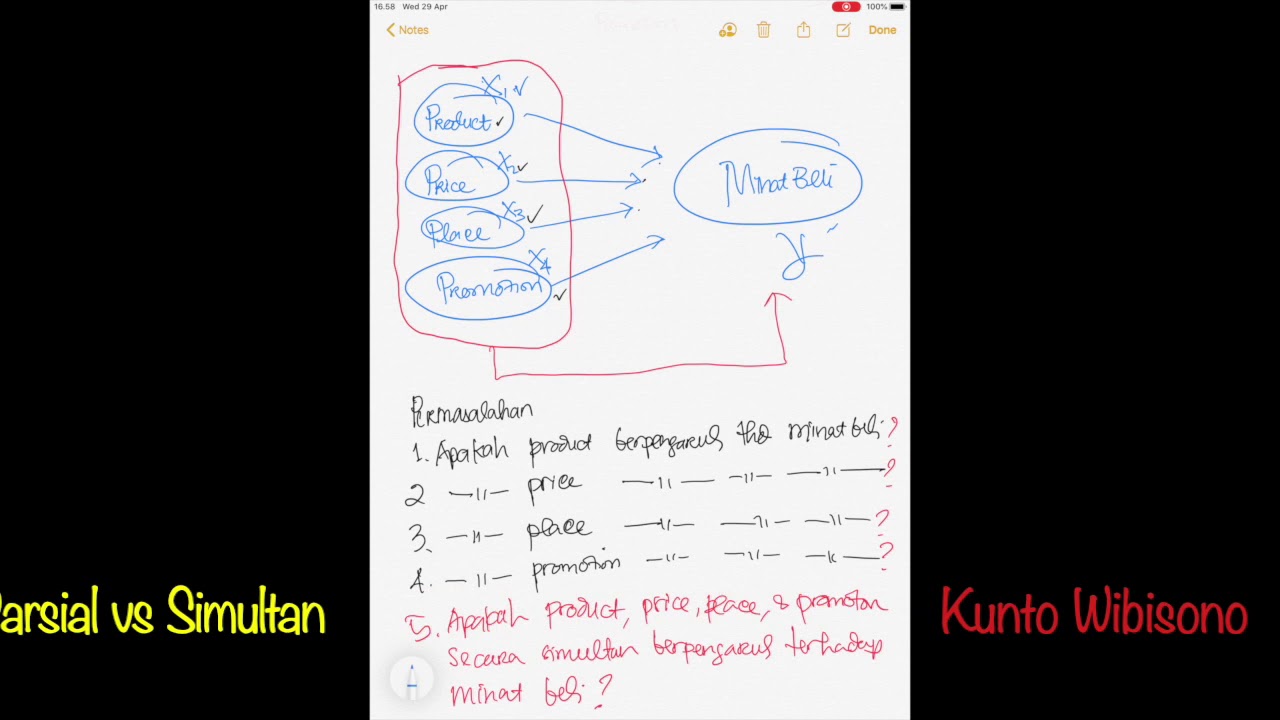 16.58 Wed 29 Apr
100%
Notes
Done
X1 ✓
Product ✓
X2 ✓
Price
X3 ✓
Place
X4
Promotion ✓
Minat Beli
Y
Permasalahan
1. Apakah product berpengaruh thd minat beli?
2 —〃— price —〃— —〃— —〃— ?
3. —〃— place —〃— —〃— —〃— ?
4. —〃— promotion —〃— —〃— —〃— ?
5. Apakah product, price, place, & promotion
secara simultan berpengaruh terhadap
minat beli?
arsial vs Simultan
Kunto Wibisono